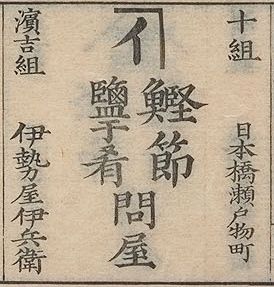 十組
日本橋瀬戸物町
イ
鰹節
鹽干肴
問屋
濱吉組
伊勢屋伊兵衛